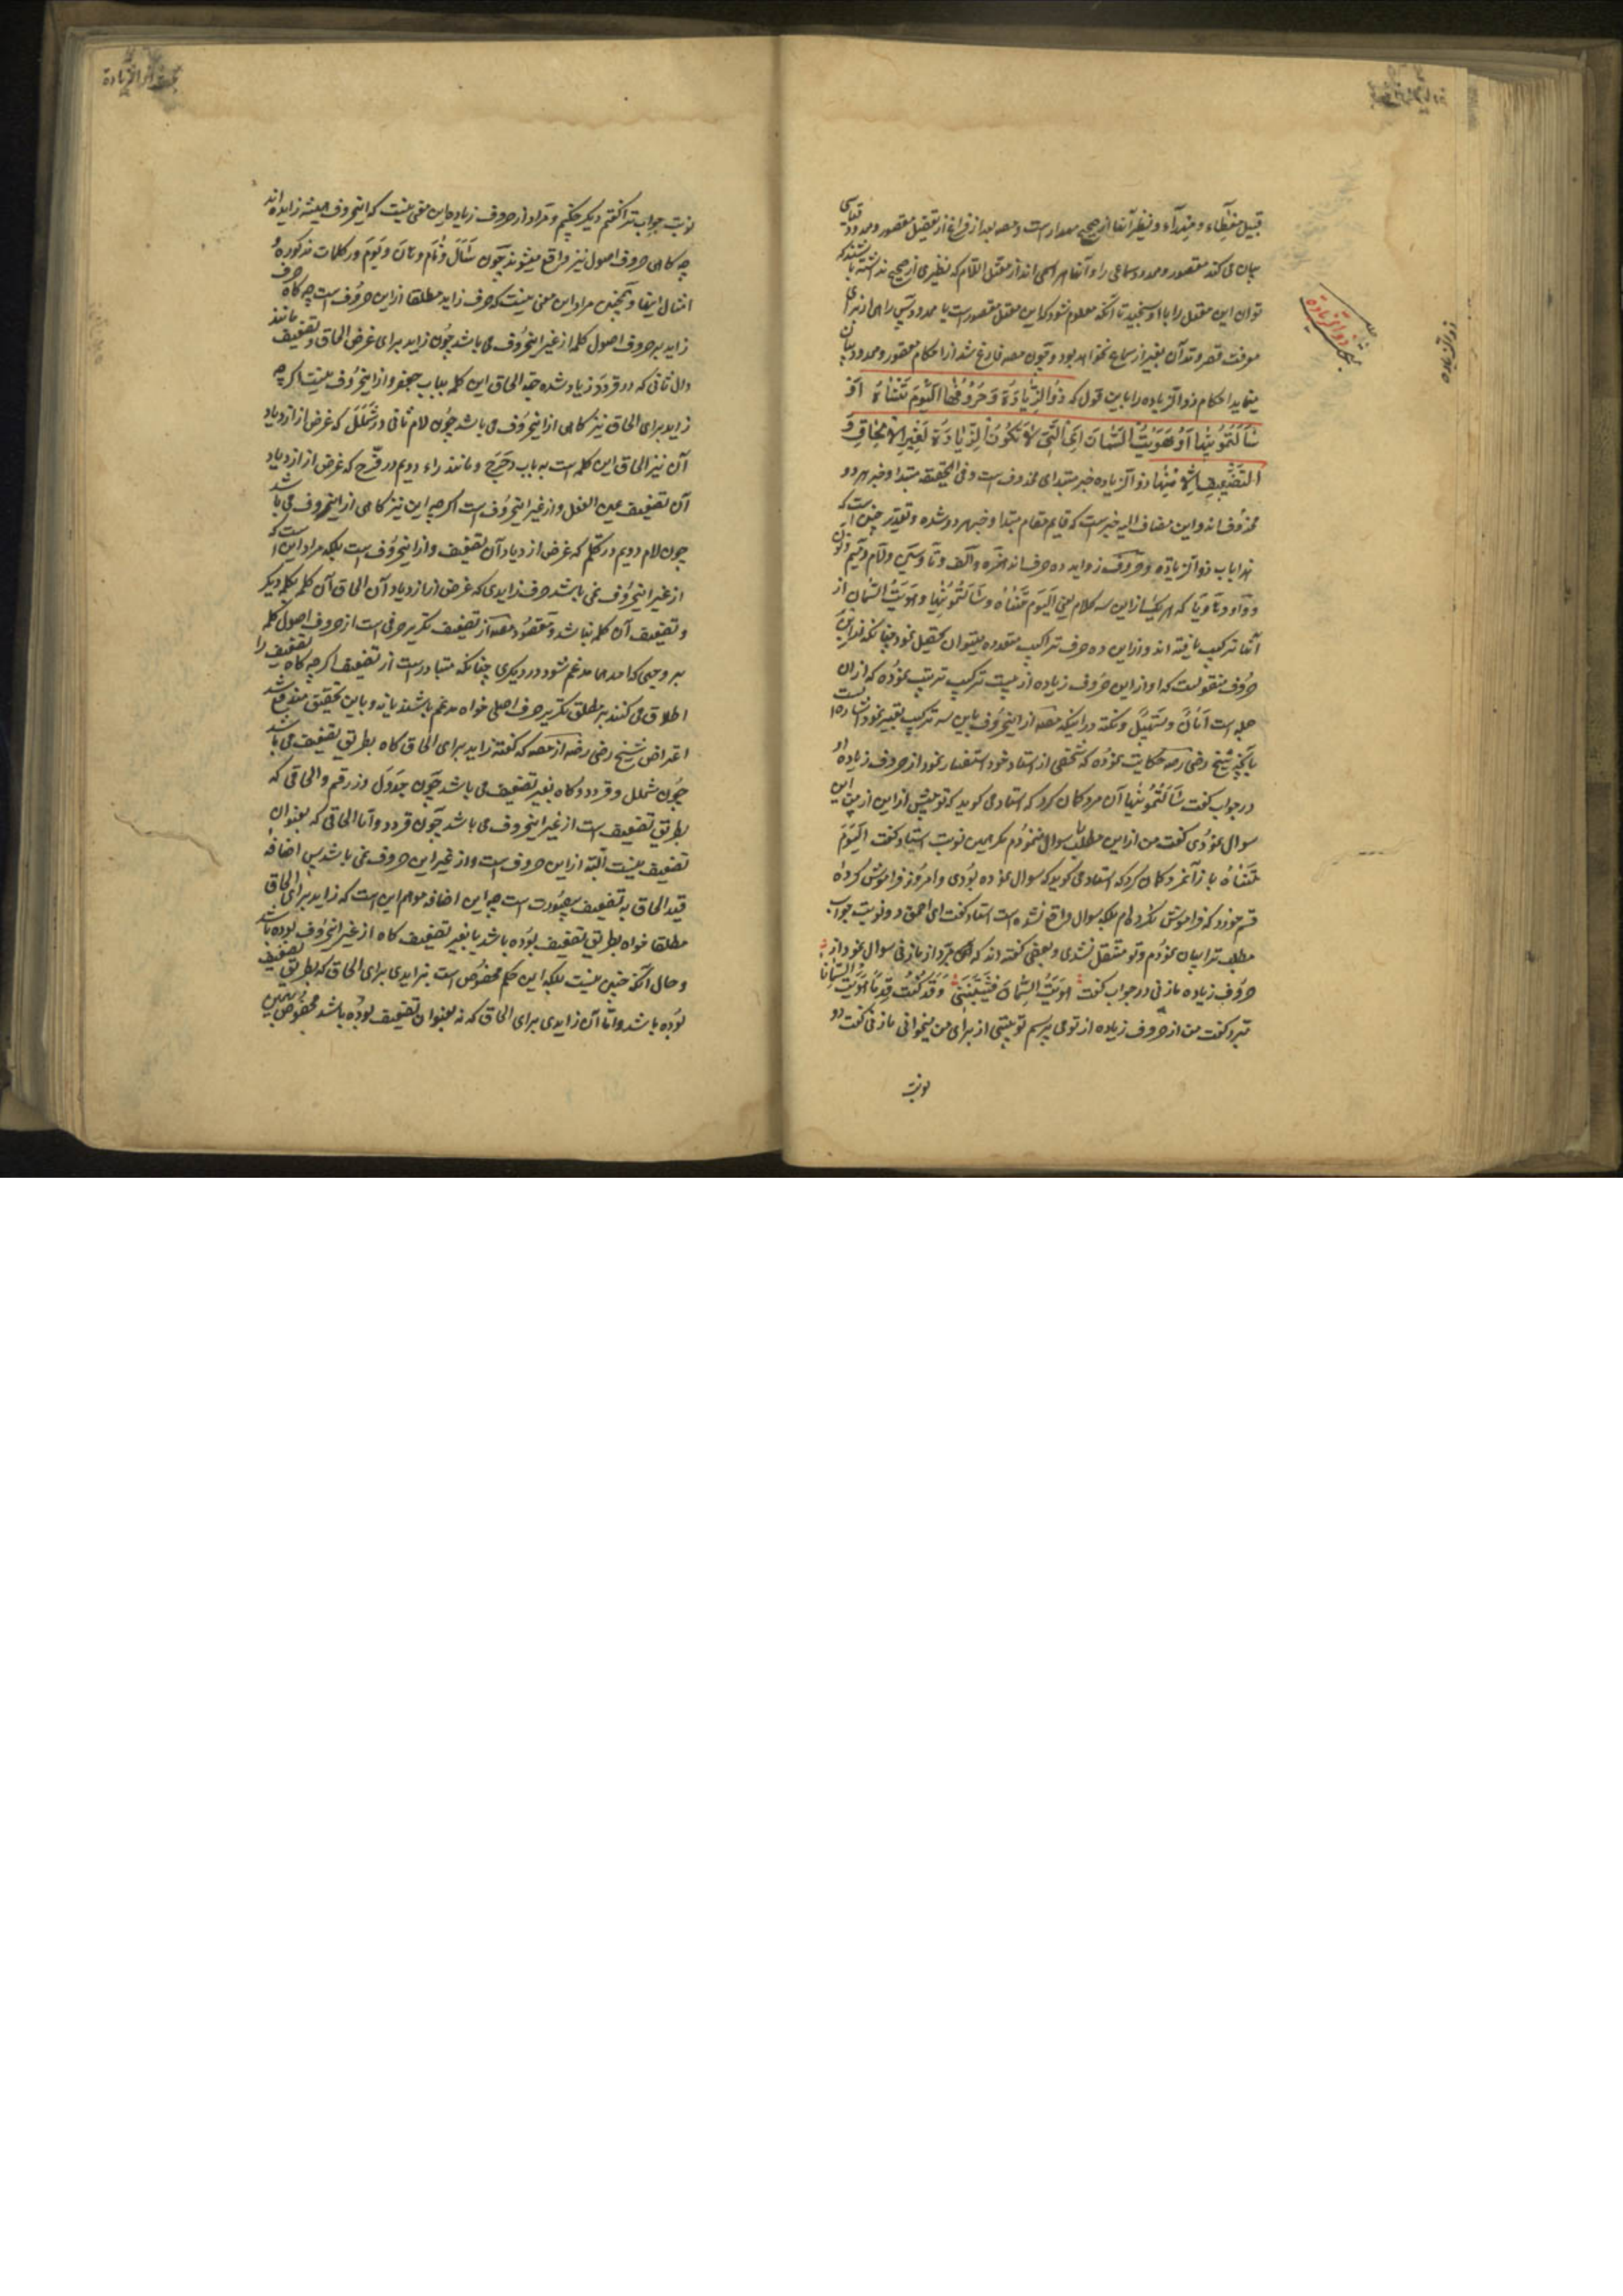 قبیل مغطاء و میداء و نظیر آنها از صحیح مهدار است و مصه بعد از فراغ از تفصیل مقصور و ممدود قیاسی
بیان می کند مقصور و ممدود سماعی را و آنها هر اسمی اند از معتل اللام که نظیری از صحیح نداشته باشند که
توان این معتل را با او سنجید تا آنکه معلوم شود که این معتل مقصور است یا ممدود پس راهی از برای
معرفت قصر و مد آن بغیر از سماع نخواهد بود و چون مصه فارغ شد از احکام مقصور و ممدود بیان
مینماید احکام ذو الزیاده را باین قول که ذُو الزِّیادَةِ وَحُرُوفُهَا اَلْیَوْمَ تَنْسٰاهُ اَوْ
سَأَلْتُمُونِیهٰا اَوْ هَوَیْتُ السِّمٰانَ اَیِ الَّتی لاٰ تَکُونُ الزِّیٰادَةُ لِغَیْرِ الاِلْحٰاقِ وَ
التَّضْعیفِ اِلاّٰ مِنْهٰا ذو الزیاده خبر مبتدای محذوف است و فی الحقیقة مبتدا و خبر هر دو
محذوف اند و این مضاف الیه خبر است که قایم مقام مبتدا و خبر هر دو شده و تقدیر چنین است که
هذا باب ذو الزیادة و حروف زواید ده حرف اند همزه و الف و تا و سین و لام و میم و نون
و واو و ها و یا که هر یک از این سه کلام یعنی الیوم تنساه و سألتمونیها و هویت السمان از
آنها ترکیب یافته اند و از این ده حرف تراکیب متعدده میتوان تحصیل نمود چنانکه از این
حروف منقولست که او از این حروف زیاده از بیست ترکیب ترتیب نموده که از ان
جمله است و نکته در اینکه مصه از این حروف باین سه ترکیب تعبیر نمود اشاره است
بآنچه شیخ رضی رضه حکایت نموده که شخصی از استاد خود استفسار نمود از حروف زیاده او
در جواب گفت سألتمونیها آن مرد گمان کرد که استاد می گوید که تو پیش از این از من این
سوال نمودی گفت من از این مطلب سوال ننمودم مگر همین نوبت استاد گفت الیوم
تنساه باز آنمرد گمان کرد که استاد می گوید که سوال نموده بودی و امروز فراموش کرده
قسم خورد که فراموش نکرده ام بلکه سوال واقع نشده است استاد گفت ای احمق دو نوبت جواب
مطلب ترا بیان نمودم و تو منتقل نشدی و بعضی گفته اند که مبرد از مازنی سوال نمود از
حروف زیاده مازنی در جواب گفت هویت السمان فشیبننی وقد کنت قدما هویت السمانا
مبرد گفت من از حروف زیاده از تو می پرسم تو بیتی از برای من میخوانی مازنی گفت دو
نوبت
ذو الزیادة
ذو الزیاده
نوبت جواب ترا گفتم دیگر چکنم و مراد از حروف زیاده این معنی نیست که این حروف همیشه زایده اند
چه گاهی حروف اصول نیز واقع میشوند چون سأل و نام و مان و یوم در کلمات مذکوره و
امثال اینها و همچنین مراد این معنی نیست که حرف زاید مطلقا از این حروف است چه گاه حرف
زاید بر حروف اصول کلمه از غیر این حروف می باشد چون زاید برای غرض الحاق و تضعیف مانند
دال ثانی که در قردد زیاد شده جهة الحاق این کلمه بباب جعفر و از این حروف نیست اگر چه
زاید برای الحاق نیز گاهی از این حروف می باشد چون لام ثانی در شملل که غرض از ازدیاد
آن نیز الحاق این کلمه است به باب دحرج و مانند راء دویم در فرّح که غرض از ازدیاد
آن تضعیف عین الفعل و از غیر این حروف است اگر چه این نیز گاهی از این حروف می باشد
چون لام دویم در کلم که غرض از ازدیاد آن تضعیف و از این حروف است بلکه مراد این است که
از غیر این حروف نمی باشد حرف زایدی که غرض از ازدیاد آن الحاق آن کلمه بکلمه دیگر
و تضعیف آن کلمه نباشد و مقصود مصه از تضعیف تکریر حرفی است از حروف اصول کلمه
بر وجهی که احدهما مدغم شود در دیگری چنانکه متبادر است از تضعیف اگر چه گاه تضعیف را
اطلاق می کنند بر مطلق تکریر حرف اصلی خواه مدغم باشند یا نه و باین تحقیق مندفع شد
اعتراض شیخ رضی رضه از مصه که گفته زاید برای الحاق گاه بطریق تضعیف می باشد
چون شملل و قردد و گاه بغیر تضعیف می باشد چون جدول و زرقم و الحاقی که
بطریق تضعیف است از غیر این حروف می باشد چون قردد و اما الحاقی که بعنوان
تضعیف نیست البته از این حروف است و از غیر این حروف نمی باشد پس اضافه
قید الحاق به تضعیف بیصورت است چه این اضافه موهم این است که زاید برای الحاق
مطلقا خواه بطریق تضعیف بوده باشد یا بغیر تضعیف گاه از غیر این حروف بوده باشد
و حال آنکه چنین نیست بلکه این حکم مخصوص است بزایدی برای الحاق که بطریق تضعیف
بوده باشد و اما آن زایدی برای الحاق که نه بعنوان تضعیف بوده باشد مخصوص بهمین